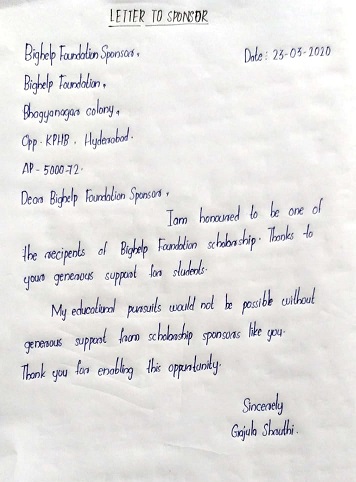 LETTER TO SPONSOR
Bighelp Foundation Sponsors,
Date: 23-03-2020
Bighelp Foundation,
Bhagyanagar colony,
Opp. KPHB, Hyderabad.
AP - 5000-72.
Dear Bighelp Foundation Sponsors,
I am honoured to be one of
the recipents of Bighelp Foundation scholarship. Thanks to
your generous support for students.
My educational pursuits would not be possible without
generous support from scholarship sponsors like you.
Thank you for enabling this oppurtunity.
Sincerely
Gajula Shruthi.